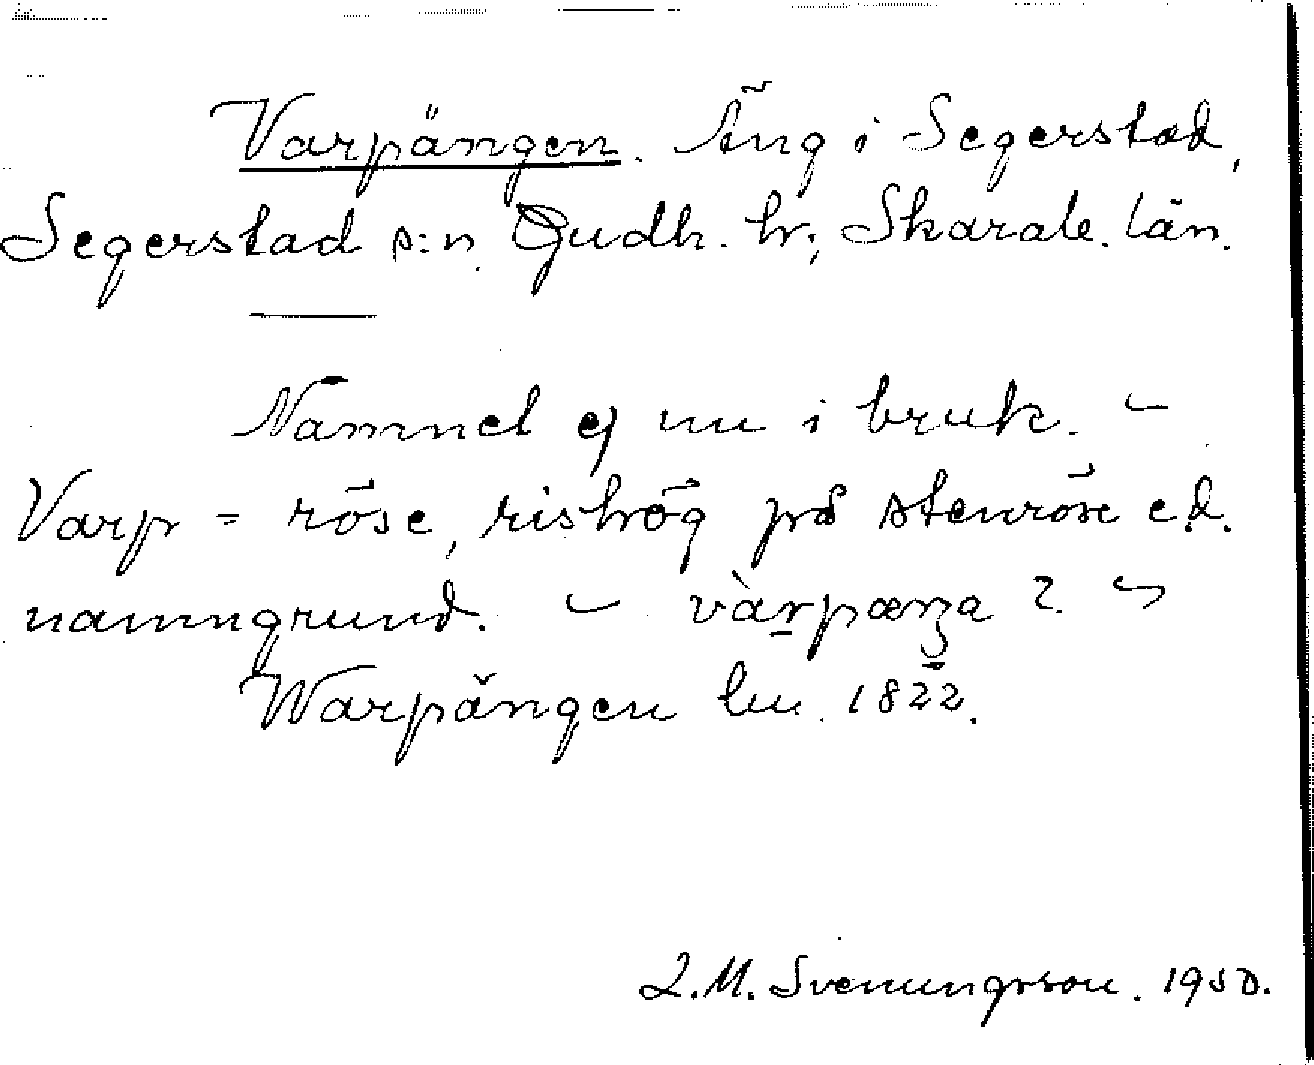 Varpängen. Äng i Segerstad,
Segerstad s:n. Gudh. hr; Skarab. län.
Namnet ej nu i bruk. –
Varp = röse, rishög på stenröse e.d.
namngrund. – vàrpæŋa ? –
Warpängen lm. 1822.
L.M. Svenungsson. 1950.